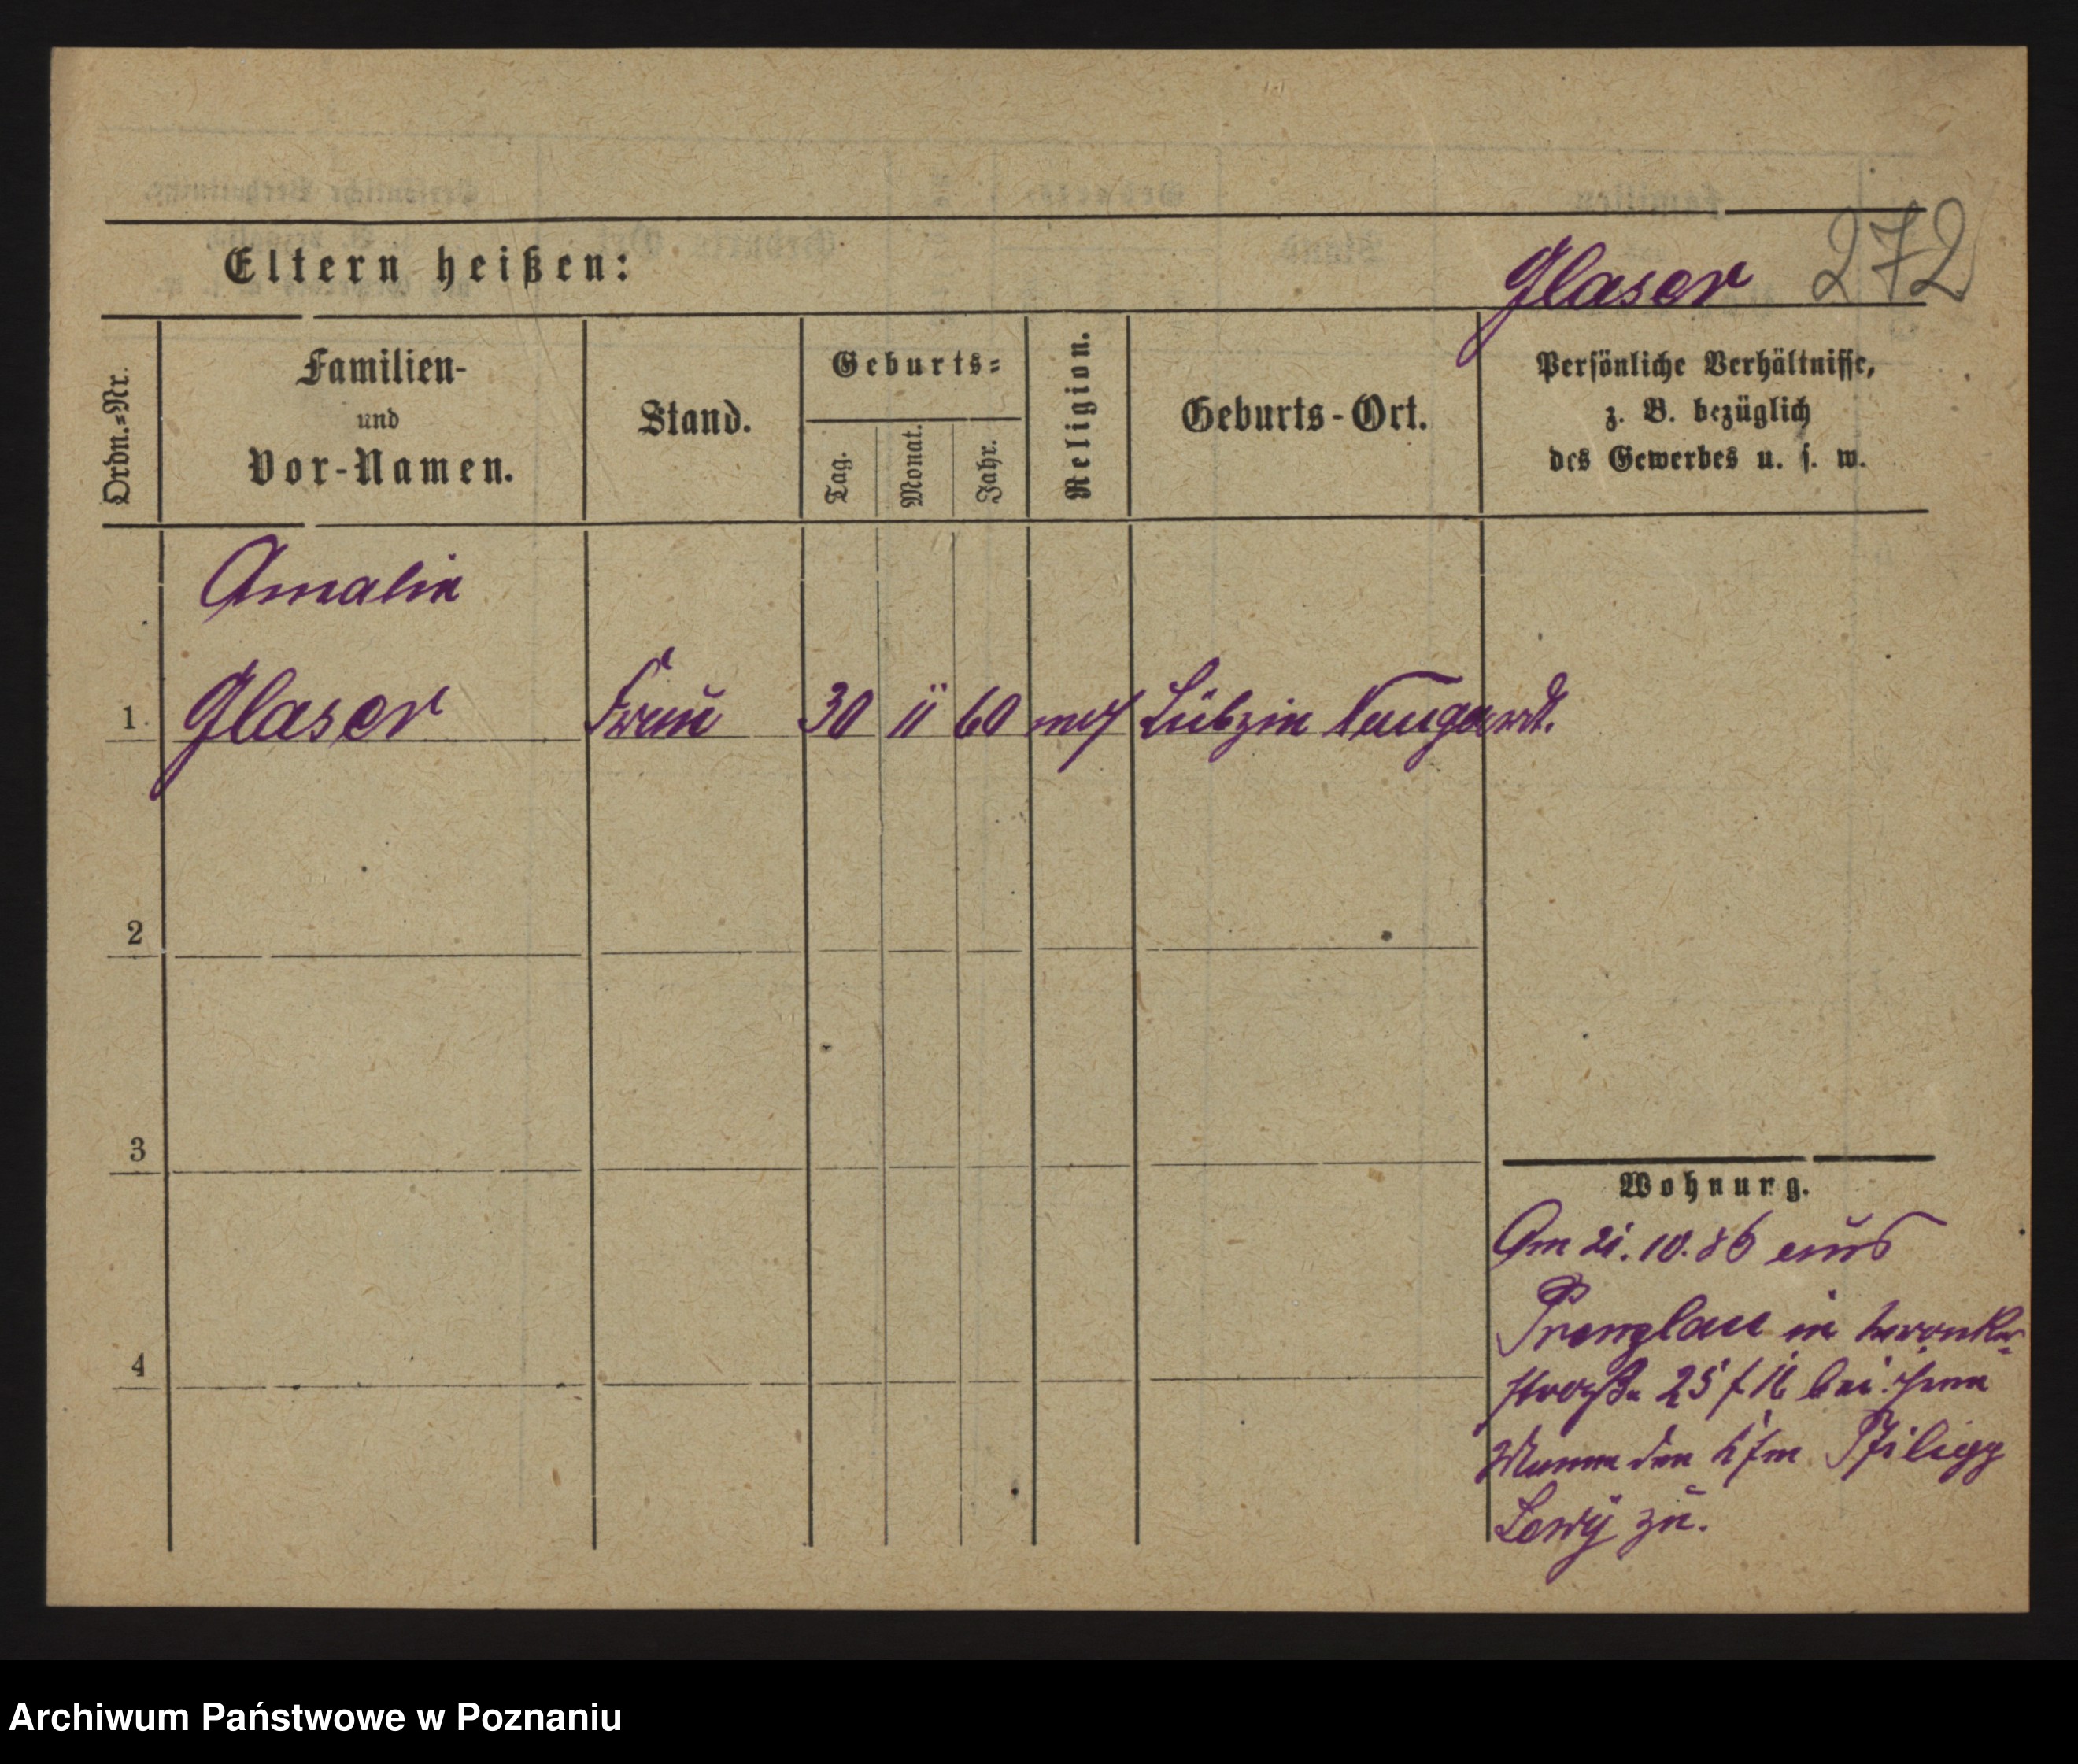 272
Eltern heißen:
Glaser
Ordn.=Nr.
Familien-
und
Vor-Namen.
Stand.
Geburts=
Tag.
Monat.
Jahr.
Religion.
Geburts-Ort.
Persönliche Verhältnisse,
z. B. bezüglich
des Gewerbes u. s. w.
Amalie
1 Glaser Frau 30 11 60 Lübzin Naugardt.
2
3
4
Wohnung.
Am 21. 10. 86 aus
Prenzlau in Wronker-
straße 25 bei ihrem
Manne dem Kfm
Lewy zu.
Archiwum Państwowe w Poznaniu